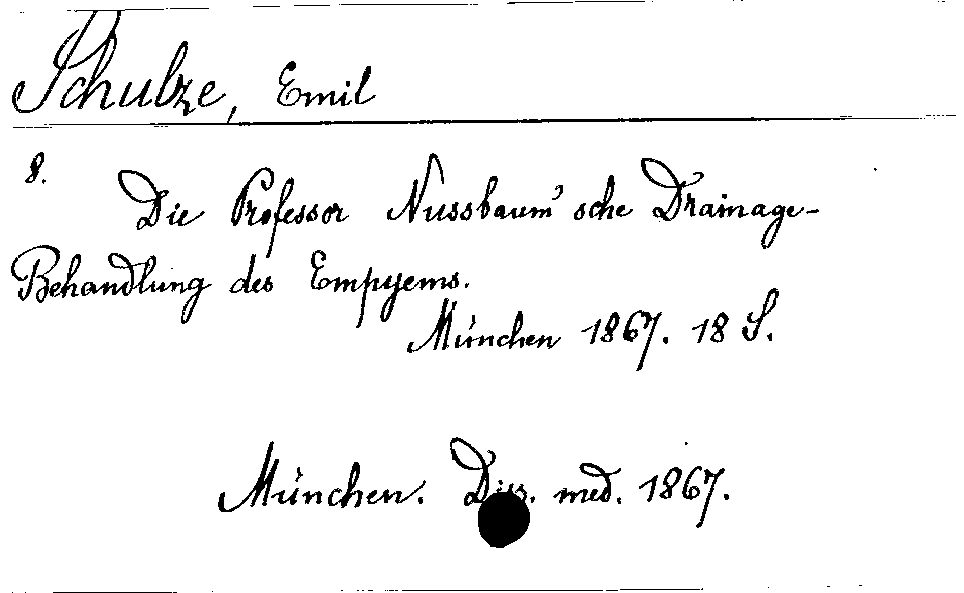 Schulze, Emil
8.
Die Professor Nussbaum'sche Drainage-
Behandlung des Empyems.
München 1867. 18 S.
München. Diss. med. 1867.